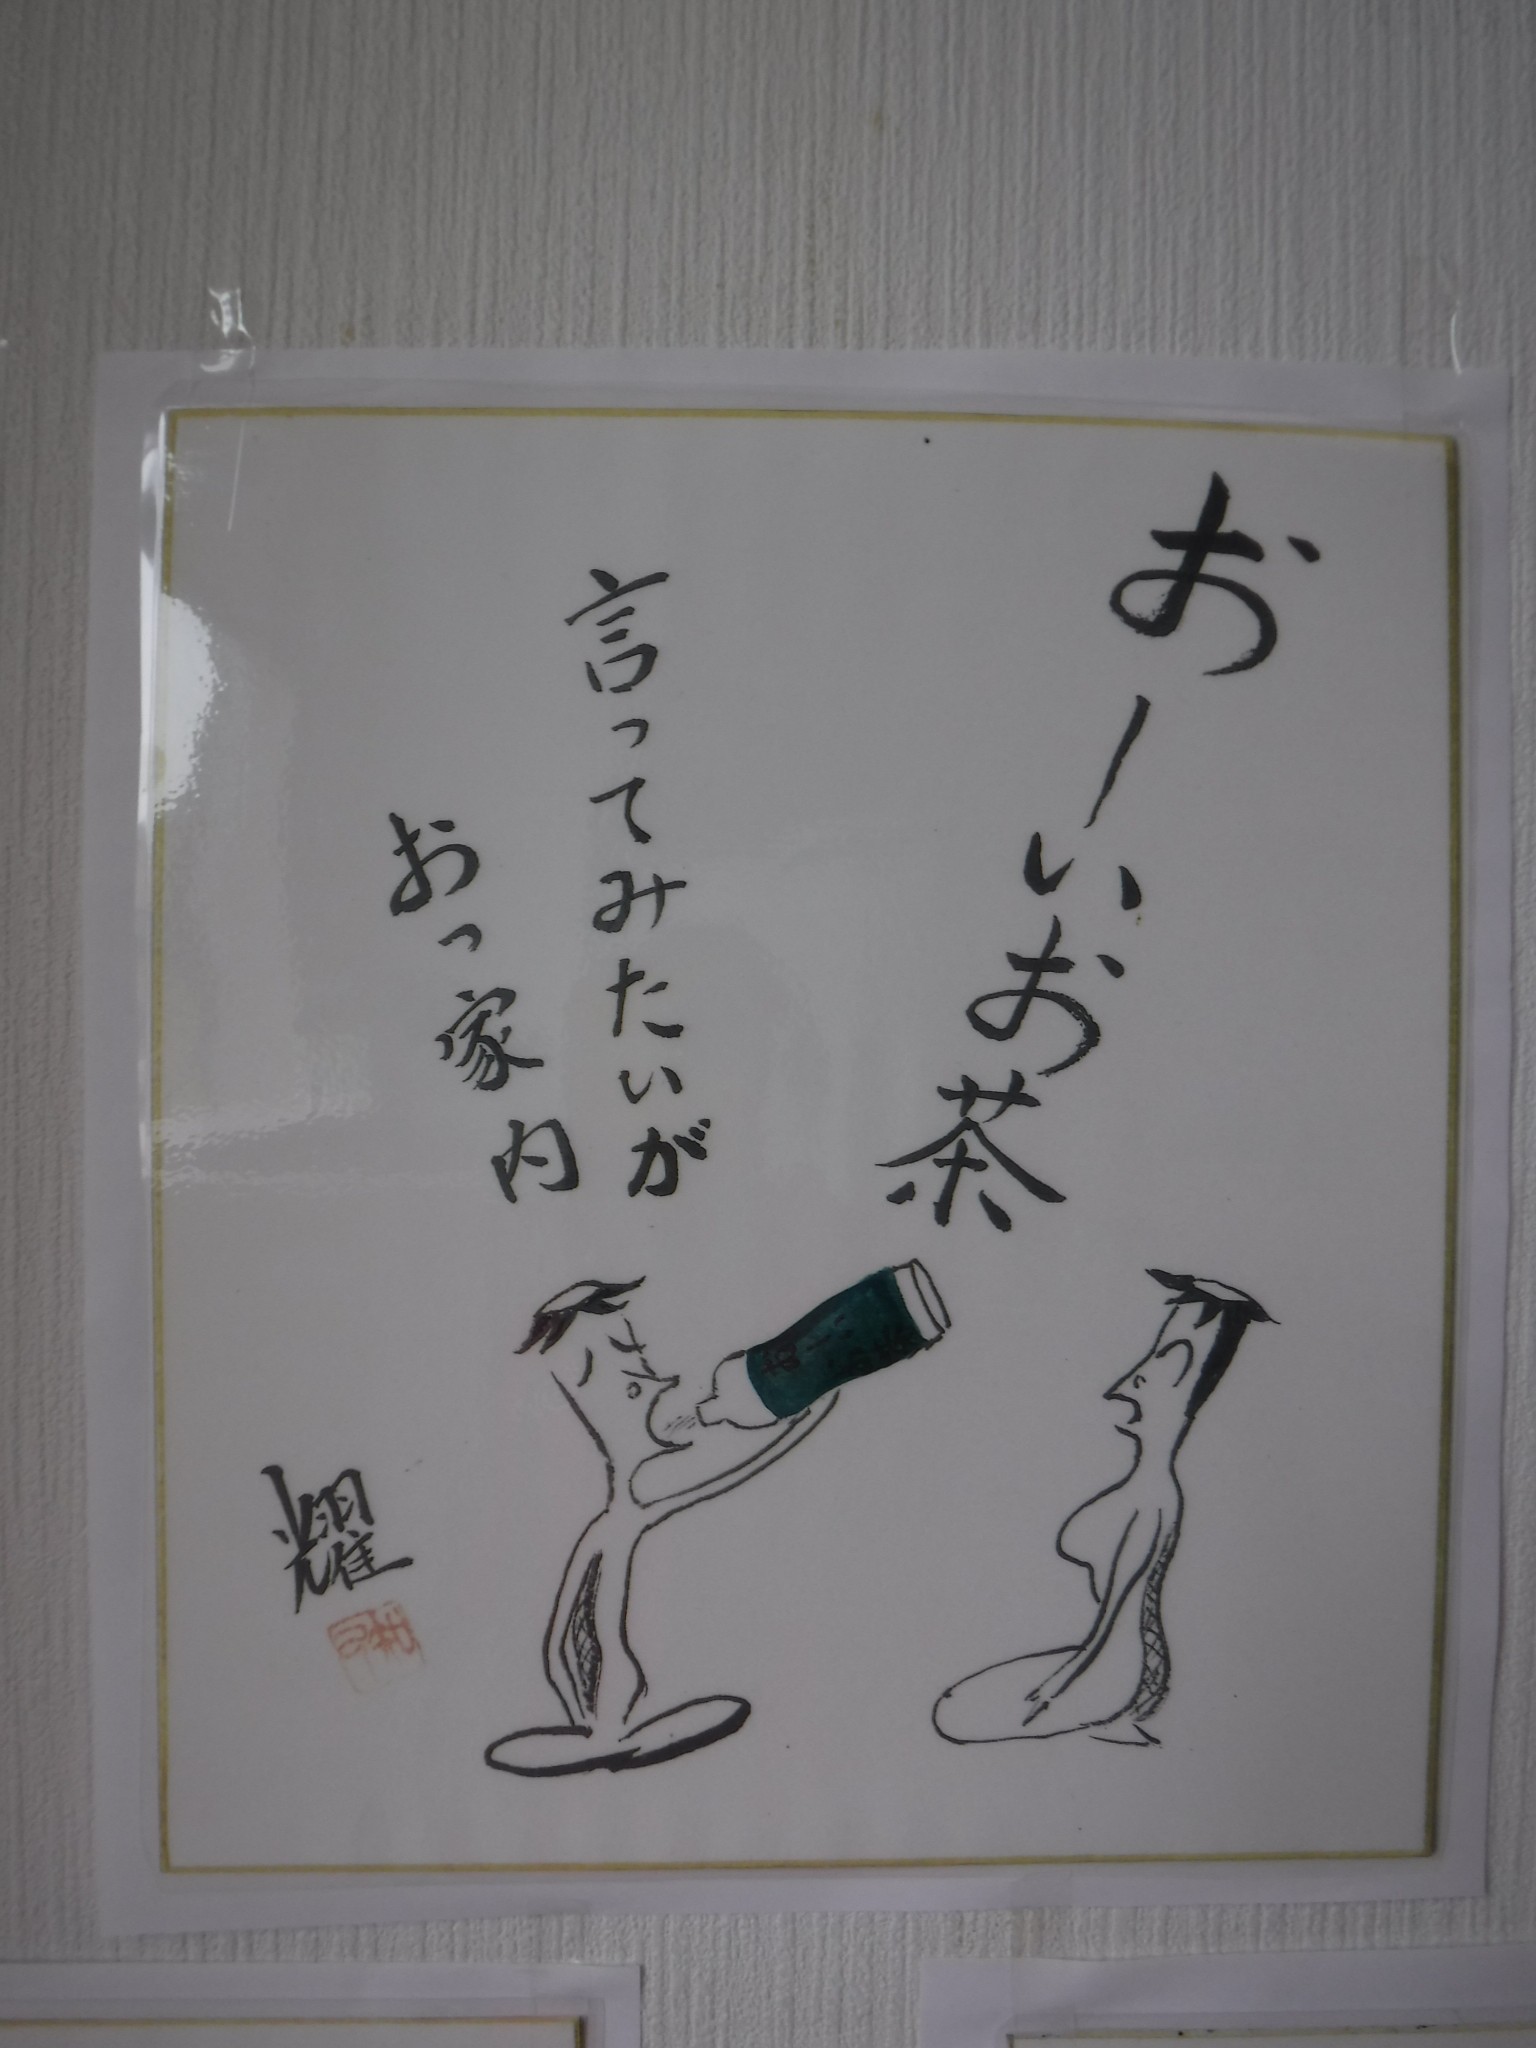 おーいお茶
言ってみたいが
おっ家内
耀